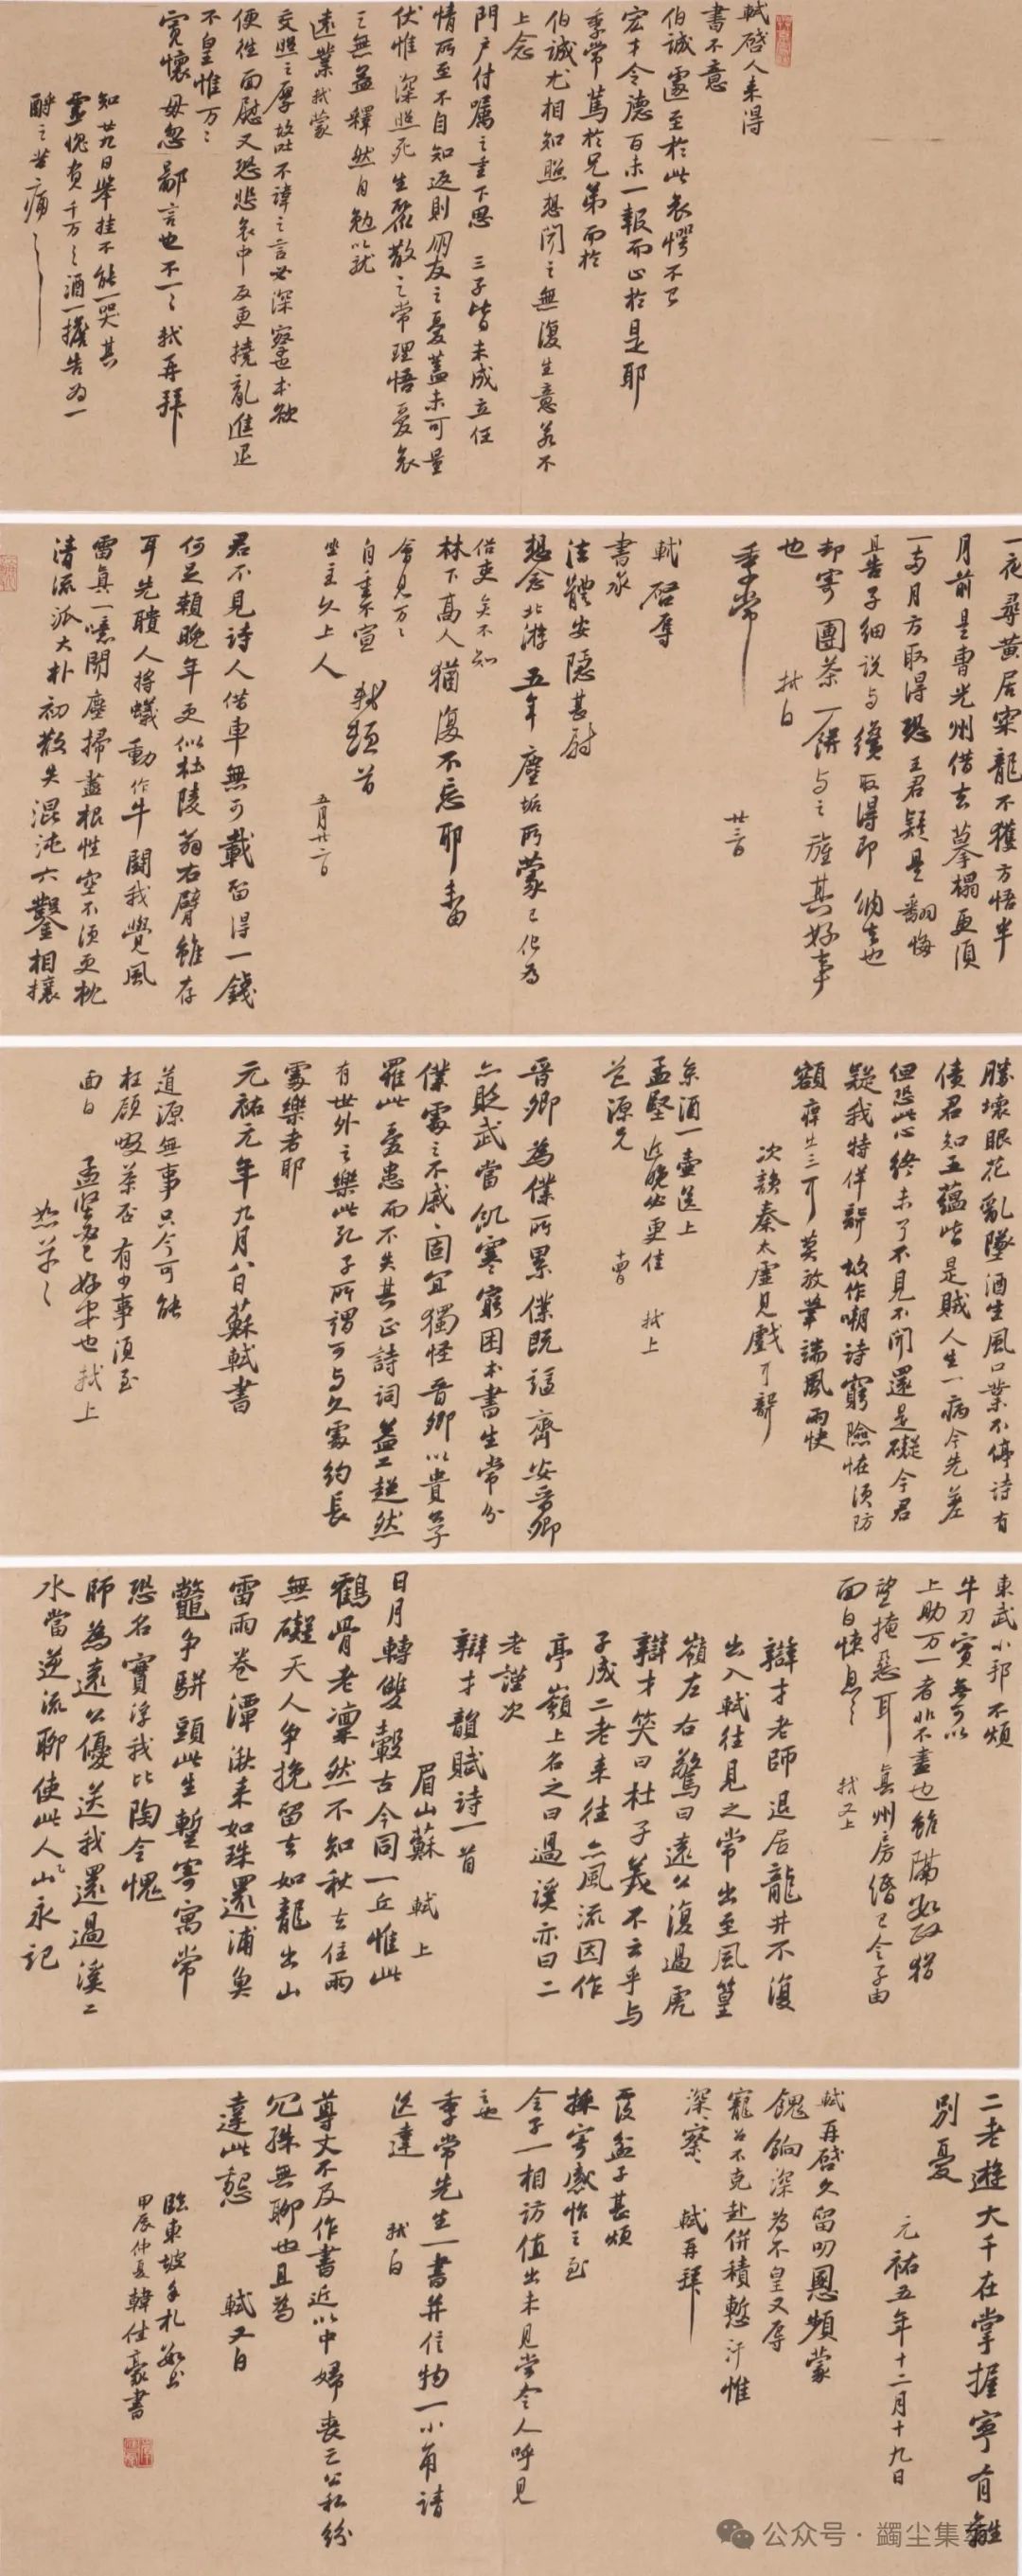 軾啓人来得
書不意
伯誠遽至於此哀愕不已
宏才令德百未一報而止於是耶
季常篤於兄弟而於
伯誠尤相知照想聞之無復生意若不
上念
門户付囑之重下思三子皆未成立任
情所至不自知返則朋友之憂蓋未可量
伏惟深照死生聚散之常理悟憂哀
之無益釋然自勉以就
遠業軾蒙
交照之厚故吐不諱之言必深察也本欲
便往面慰又恐悲哀中反更撓亂進退
不皇惟万万
寬懷毋忽鄙言也不一一軾再拜
知廿九日舉挂不能一哭其
靈愧負千万千万酒一擔告為一
酹之苦痛苦痛
一夜尋黃居寀龍不獲方悟半
月前是曹光州借去摹榻更須
一兩月方取得恐王君疑是翻悔
且告子細説与纔取得即納去也
却寄團茶一餅与之旌其好事
也
軾白
季常
廿三日
軾啓辱
書承
法體安隱甚慰
想念北游五年塵垢所蒙已化為
俗吏矣不知
林下高人猶復不忘耶未由
會見万万
自重不宣
軾頓首
坐主久上人
五月廿二日
君不見詩人借車無可載留得一錢
何足賴晚年更似杜陵翁右臂雖存
耳先聵人將蟻動作牛鬪我覺風
雷真一噫聞塵掃盡根性空不須更枕
清流派大朴初散失混沌六鑿相攘
勝壞眼花亂墜酒生風口業不停詩有
債君知五蘊皆是賊人生一病今先差
但恐此心終未了不見不聞還是礙今君
疑我特佯聾故作嘲詩窮險怪須防
額痒出三耳莫放筆端風雨快
次韻秦太虛見戲耳聾
糸酒一壷送上
孟堅近晚必更佳軾上
道源兄
十四日
晉卿為僕所累僕既謫齊安晉卿
亦貶武當飢寒窮困本書生常分
僕處之不戚戚固宜獨怪晉卿以貴公子
罹此憂患而不失其正詩詞益工超然
有世外之樂此孔子所謂可与久處約長
處樂者耶
元祐元年九月八日蘇軾書
道源無事只今可能
枉顧啜茶否有少事須至
面白孟堅必已好安也軾上
恕草恕草
東武小邦不煩
牛刀實無可以
上助万一者非不盡也雖隔數政猶
望掩惡耳真州房緡已令子由
面白悚息悚息軾又上
辯才老師退居龍井不復
出入軾往見之常出至風篁
嶺左右驚曰遠公復過虎
辯才笑曰杜子美不云乎与
子成二老来往亦風流因作
亭嶺上名之曰過溪亦曰二
老謹次
辯才韻賦詩一首
眉山蘇軾上
日月轉雙轂古今同一丘惟此
鶴骨老凜然不知秋去住兩
無礙天人争挽留去如龍出山
雷雨卷潭湫来如珠還浦魚
鼈争駢頭此生蹔寄寓常
恐名實浮我比陶令愧
師為遠公優送我還過溪二
水當逆流聊使此人山永記
二老遊大千在掌握寧有離
別憂
元祐五年十二月十九日
軾再啓久留叨恩頻蒙
餽餉深為不皇又辱
寵召不克赴併積慙汗惟
深察深察軾再拜
覆盆子甚煩
採寄感怍之至
令子一相訪值出未見當令人呼見
之也
季常先生一書并信物一小角請
送達軾白
尊丈不及作書近以中婦喪亡公私紛
冗殊無聊也且為
達此懇軾又白
臨東坡手札數上
甲辰仲夏韓仕豪書
公众号·蠲尘集